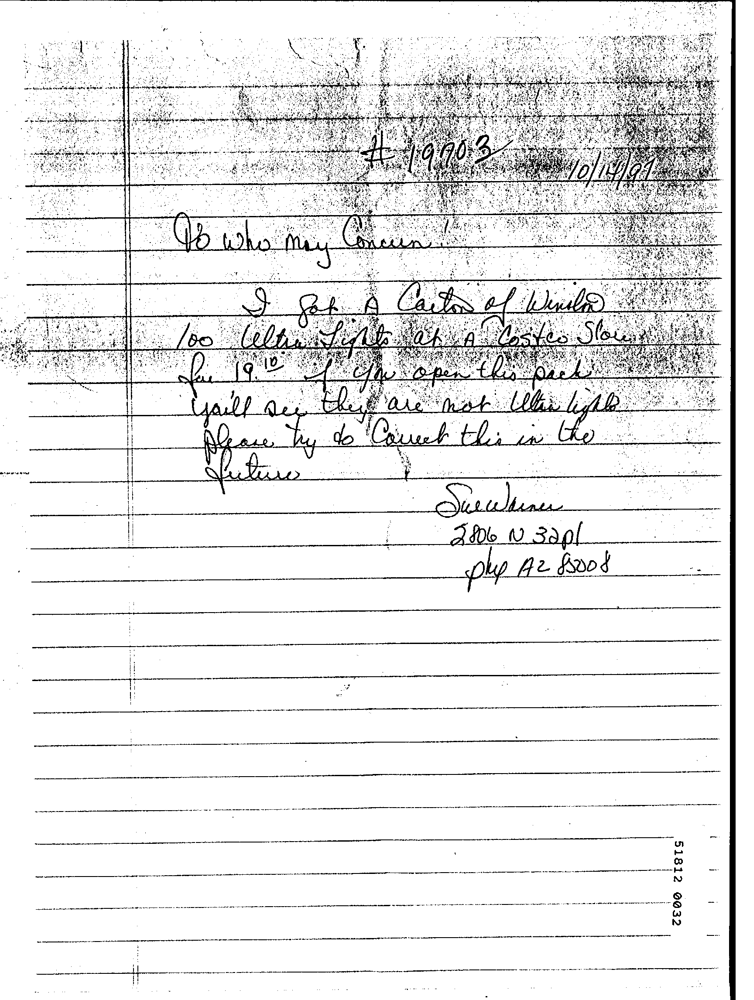 # 19703
10/14/97
To who may Concern!
I got A Carton of Winston
100 Ultra Lights at A Costco Store
for 19.10 if you open this pack
you'll see they are not Ultra lights
please try to Correct this in the
future
Sue
2806 N 32pl
phx AZ 85008
51812 0032